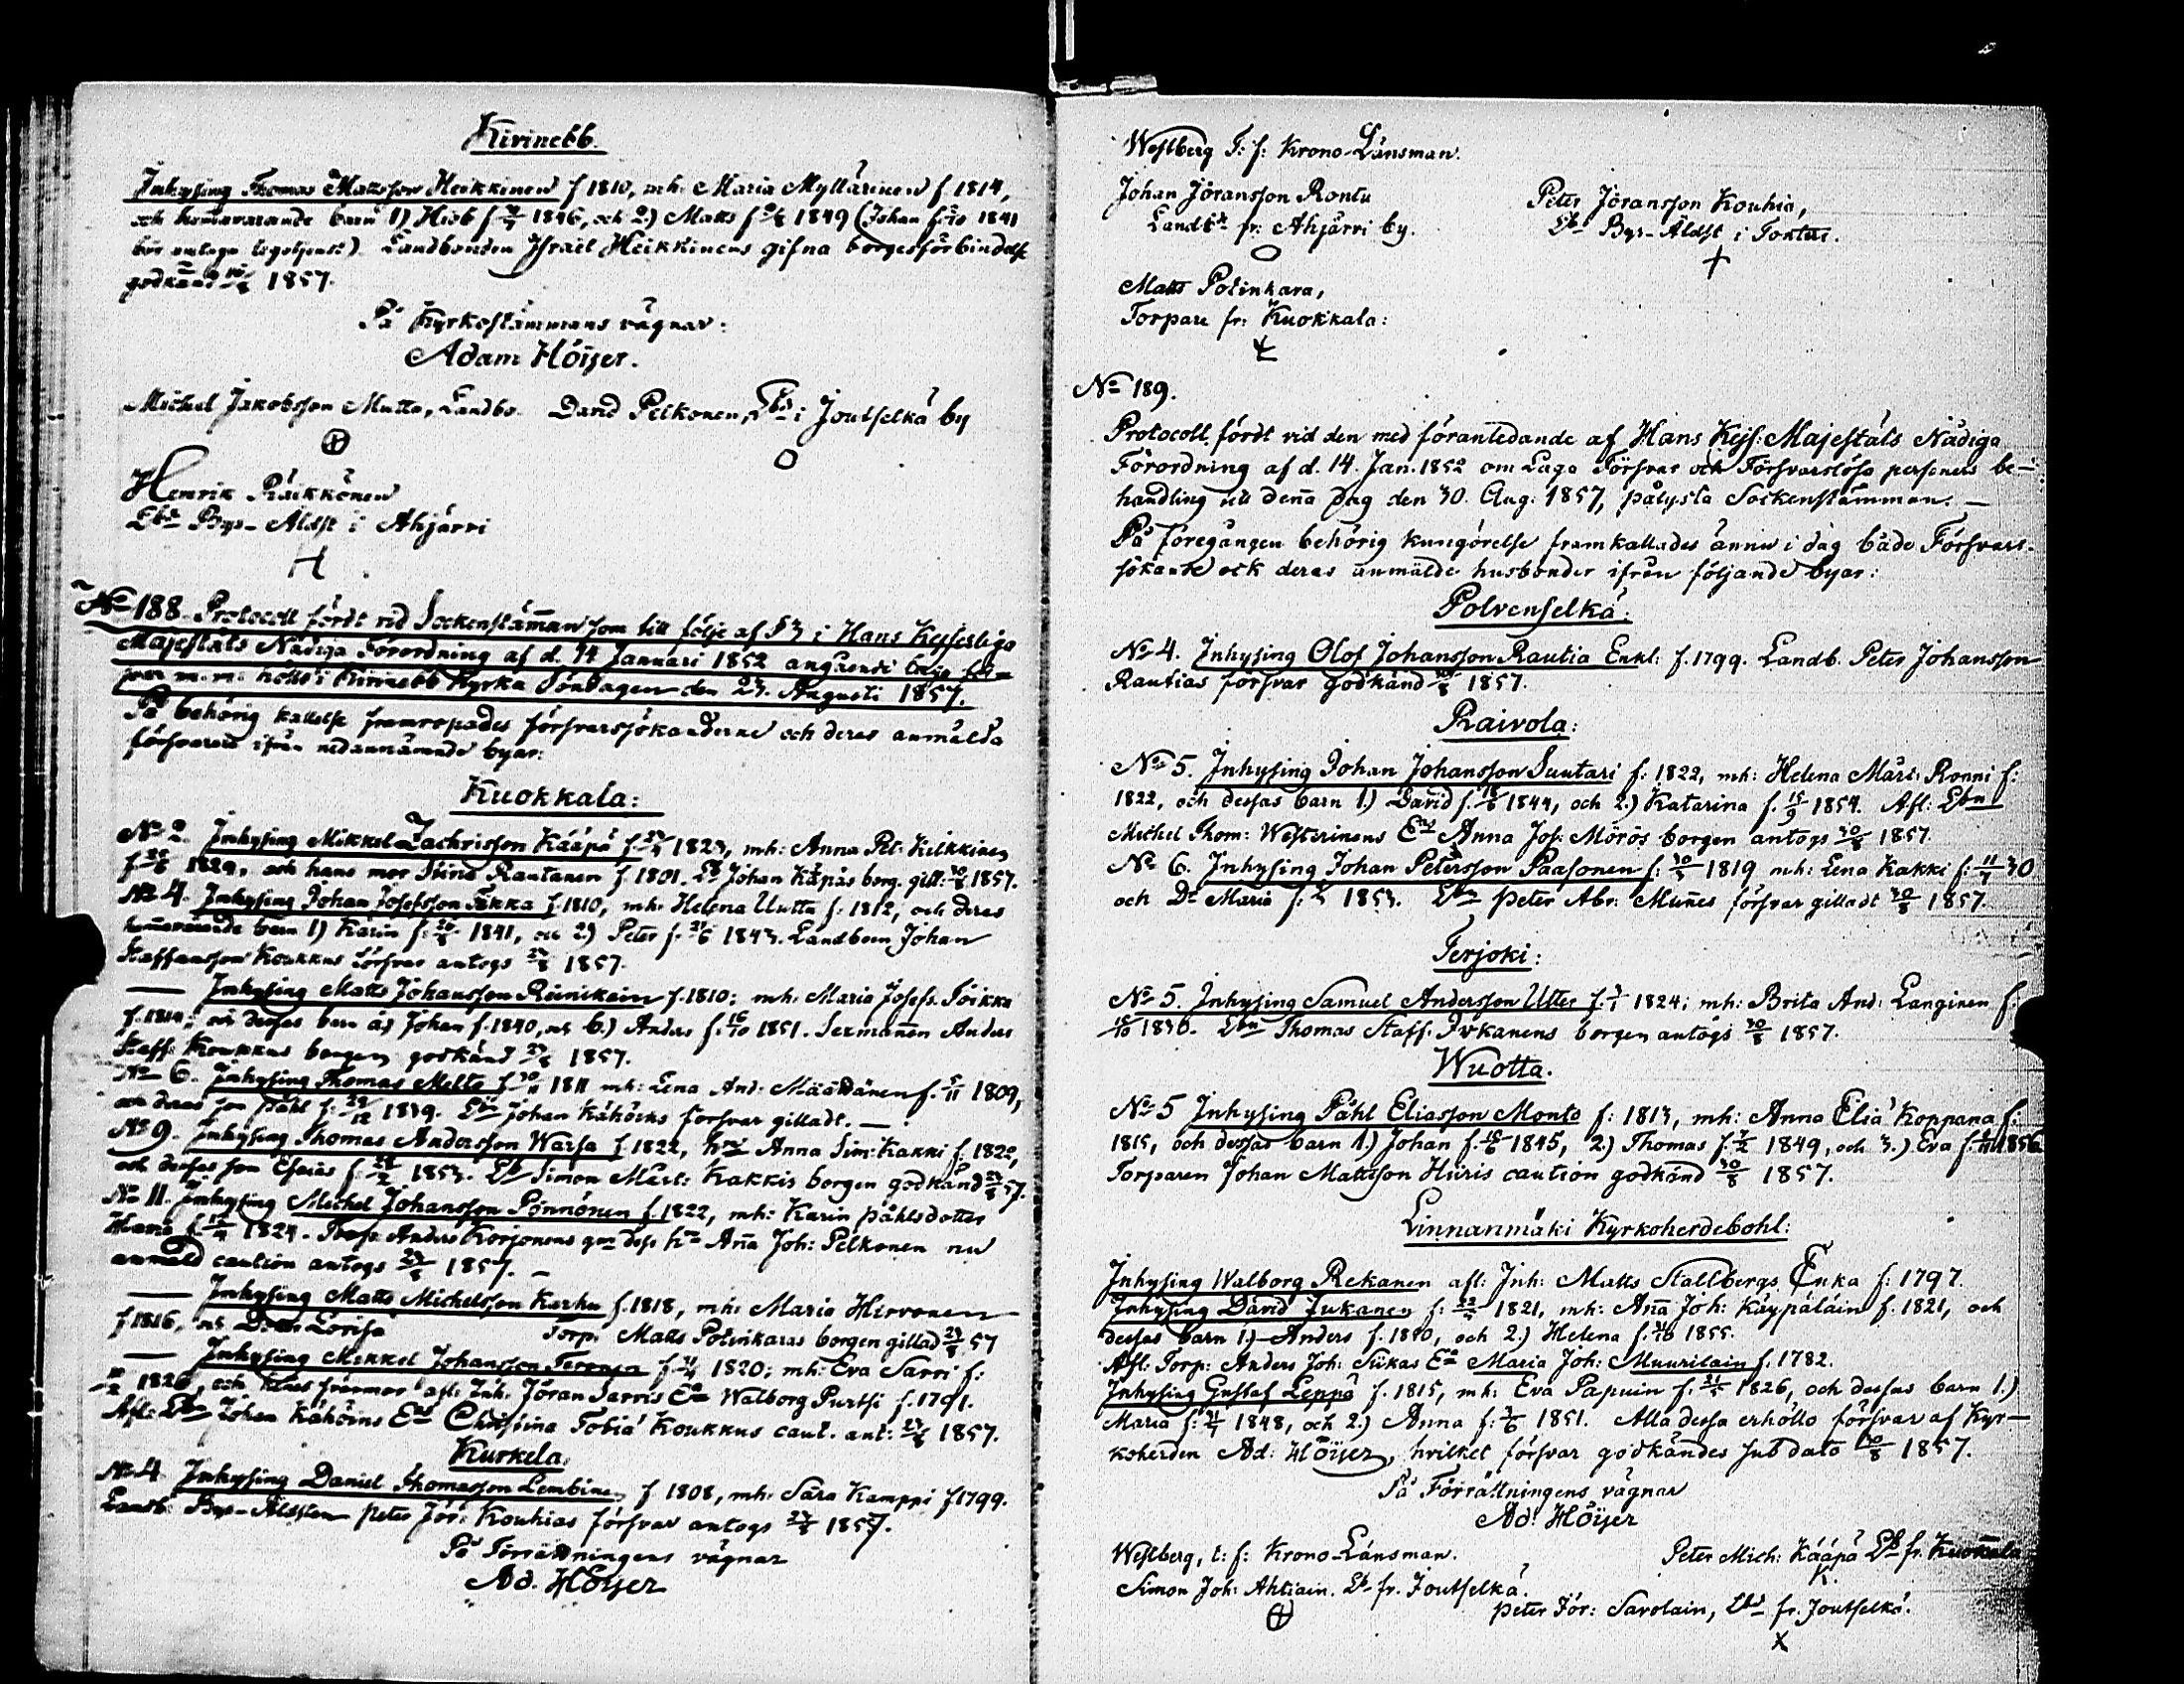 Kivinebb.
Inhysing Thomas Mattsson Heikkinen f 1810, mh: Maria Myllärinen f. 1814,
och hemmavarande barn 1) Hiob f 1846, och 2) Matts f 1849 (Johan f. 1841
bör antaga legotjenst) Landbonden Israel Heikkinens gifna borgesförbindelse
godkänd 1857.
På Kyrkostämmans vägnar:
Adam Höijer.
Michel Jakobsson Mutta, Landbo. David Pelkonen, Lbd i Joutselkä by
Henrik Räikkönen
Lbd Bys-Äldst i Ahjärvi
No 188. Protocoll fördt vid Sockenstämman som till följe af § 3 i Hans Kejserliga
Majestäts Nådiga Förordning af d. 14 Januari 1852 angående laga för-
svar m.m: hölls i Kivinebb Kyrka Söndagen den 23. Augusti 1857.
På behörig kallelse framropades försvarssökanderne och deras anmälda
försvarare ifrån nedannämnde byar:
Kuokkala:
No 2. Inhysing Mikkel Zachrisson Kääpä f 1823, mh: Anna Pet: Kilkkinen
f. 1829, och hans mor Stina Rautanen f. 1801. Lb Johan Käpäs borg. gill: 1857.
No 4. Inhysing Johan Josefsson Tikka f 1810, mh: Helena Uutta f. 1812, och deras
hemmavarande barn 1) Karin f: 1841, och 2) Peter f. 1843. Landbon Johan
Staffansson Koukkus försvar antogs 23/8 1857.
— Inhysing Matts Johansson Riinikain f. 1810; mh: Maria Josefs. Toikka
f. 1814; och dessas barn a) Johan f. 1840, och b.) Anders f. 16/10 1851. Sexmannen Anders
Staff: Koukkus borgen godkänd 23/8 1857.
No 6. Inhysing Thomas Meltto f 1811 mh: Lena And: Määttänen f. 5/11 1809,
och deras son Påhl f. 29/12 1839. Lbn Johan Kähöins försvar gilladt. —
No 9. Inhysing Thomas Andersson Warsa f. 1822, Anna Sim: Kakki f. 1820,
och dessas son Esaias f. 1853. Lb Simon Mårt: Kakkis borgen godkänd 23/8 57.
No 11. Inhysing Michel Johansson Pönnönen f. 1822, mh: Karin Påhlsdotter
f. 1824. Anders Korjonens dess Anna Joh: Pelkonen nu
anmäld caution antogs 23/8 1857. —
— Inhysing Matts Michelsson Karhu f. 1818, mh: Maria Hirvonen
f 1816, Lovisa Torp: Matts Potinkaras borgen gillad 23/8 57
— Inhysing Mikkel Johansson f 1820; mh: Eva Sarri f:
1826, och hennes afl: Inh. Jöran Sarris Ea Walborg Purtsi f. 1791.
Afl: Lbn Johan Kähöins Ea Christina Tobiæ Koukkus caut. ant: 23/8 1857.
Kurkela.
No 4. Inhysing Daniel Thomasson Lembinen f 1808, mh: Sara Kamppi f 1799.
Landb: Bys-Äldsten Peter Jör: Kouhias försvar antogs 23/8 1857.
På Förrättningens vägnar
Ad. Höijer
Westberg T: f: Krono-Länsman.
Johan Jöransson Rontu
Landbd fr: Ahjärvi by.
Peter Jöransson Kouhia,
Lb Bys-Äldst i
Matts Potinkara,
Torpare fr: Kuokkala:
No 189.
Protocoll, fördt vid den med föranledande af Hans Kejs: Majestäts Nådiga
Förordning af d. 14. Jan. 1852 om Laga Försvar och Försvarslösa personers be-
handling till denna dag den 30. Aug. 1857, pålysta Sockenstämman. —
På föregången behörig kungörelse framkallades ännu i dag både Försvars-
sökande och deras anmälde husbönder ifrån följande byar:
Polvenselkä:
No 4. Inhysing Olof Johansson Rautia Enkl: f. 1799. Landb. Peter Johansson
Rautias försvar godkänd 30/8 1857.
Raivola:
No 5. Inhysing Johan Johansson Suutari f: 1822, mh: Helena Mårt: Ronni f:
1822, och dessas barn 1.) David f. 1844, och 2.) Katarina f. 15/9 1854. Afl: Lbn
Michel Thom: Westerinens Enka Anna Jos: Mörös borgen antogs 30/8 1857.
No 6. Inhysing Johan Petersson Paasonen f: 1819 mh: Lena Kakki f: 11/7 30
och Dr Maria f: 1853. Lbn Peter Abr: Munnes försvar gilladt 30/8 1857.
Terjoki:
No 5. Inhysing Samuel Andersson Utter f. 1824; mh: Brita And: Langinen f.
15/10 1830. Lbn Thomas Staff. Irkanens borgen antogs 30/8 1857.
Wuotta.
No 5 Inhysing Påhl Eliasson Monto f: 1813, mh: Anna Eliæ Koppana f:
1815, och dessas barn 1.) Johan f. 1845, 2.) Thomas f. 1849, och 3.) Eva f. 1856
Torparen Johan Mattsson Hiiris caution godkänd 30/8 1857.
Linnanmäki Kyrkoherdebohl:
Inhysing Walborg Rekanen afl: Inh: Matts Stallbergs Enka f: 1797.
Inhysing David Jukanen f: 1821, mh: Anna Joh: Käypäläin f. 1821, och
dessas barn 1.) Anders f. 1850, och 2.) Helena f. 1855.
Afl: Torp: Anders Joh: Siikas Ea Maria Joh: Muurilain f. 1782.
Inhysing Gustaf Leppä f. 1815, mh: Eva Papuin f. 1826, och dessas barn 1.)
Maria f: 1848, och 2.) Anna f: 1851. Alla dessa erhöllo försvar af Kyr-
koherden Ad: Höijer, hvilket försvar godkändes sub dato 30/8 1857.
På Förrättningens vägnar
Ad: Höijer
Westberg, t: f: Krono-Länsman.
Peter Mich: Kääpä Lb fr. Kuokkala
Simon Joh: Ahtiain. Lb fr. Joutselkä.
Peter Jör: Savolain, Lbd fr. Joutselkä.